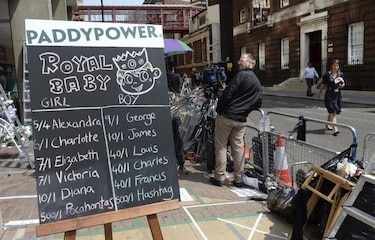 PADDYPOWER.
ROYAL
BABY
GIRL
BOY
7/4 Alexandra
6/1 Charlotte
7/1 Elizabeth
7/1 Victoria
10/1 Diana
500/1 Pocahontas
9/1 George
10/1 James
16/1 Louis
40/1 Charles
40/1 Francis
500/1 Hashtag